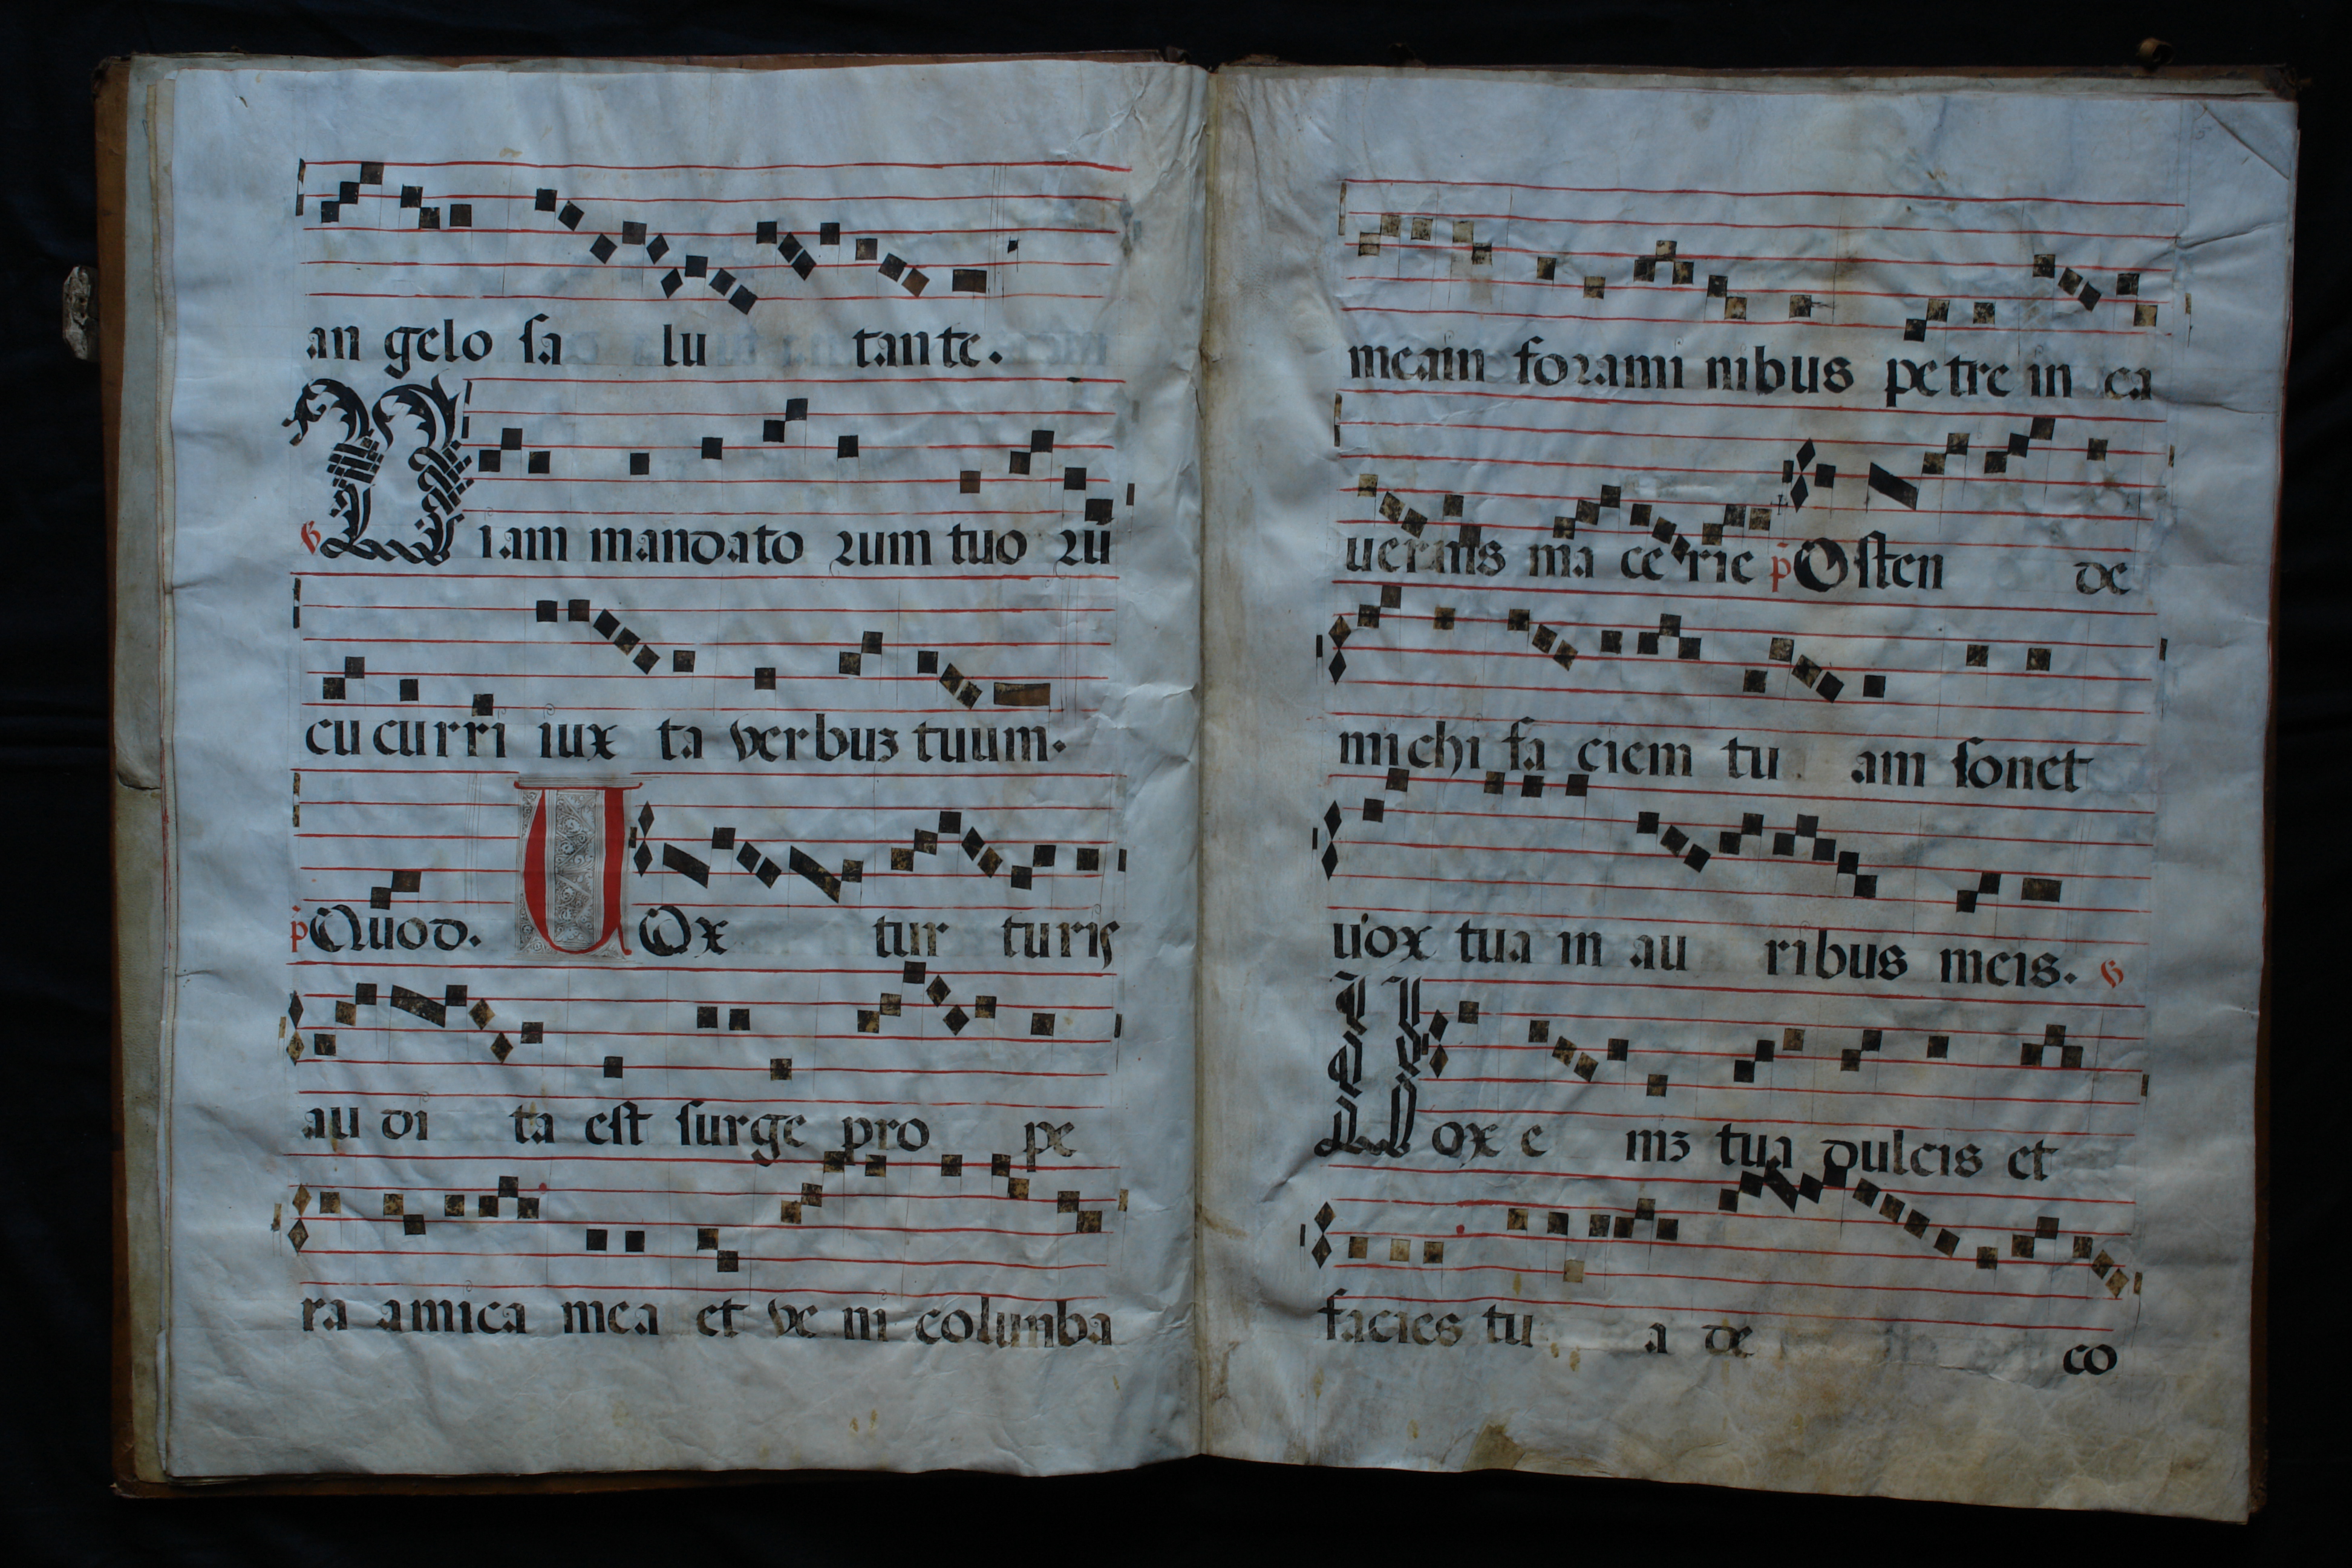 an gelo sa lu tante.
Viam mandato rum tuo rũ
cu curri iux ta verbuꝫ tuum.
p̃ Quod. UOx tur turis
au di ta est surge pro pe
ra amica mea et ve ni columba
mea in forami nibus petre in ca
uernis ma ce rie p̃ Osten de
michi fa ciem tu am sonet
uox tua in au ribus meis.
Uox e niꝫ tua dulcis et
facies tu a de co